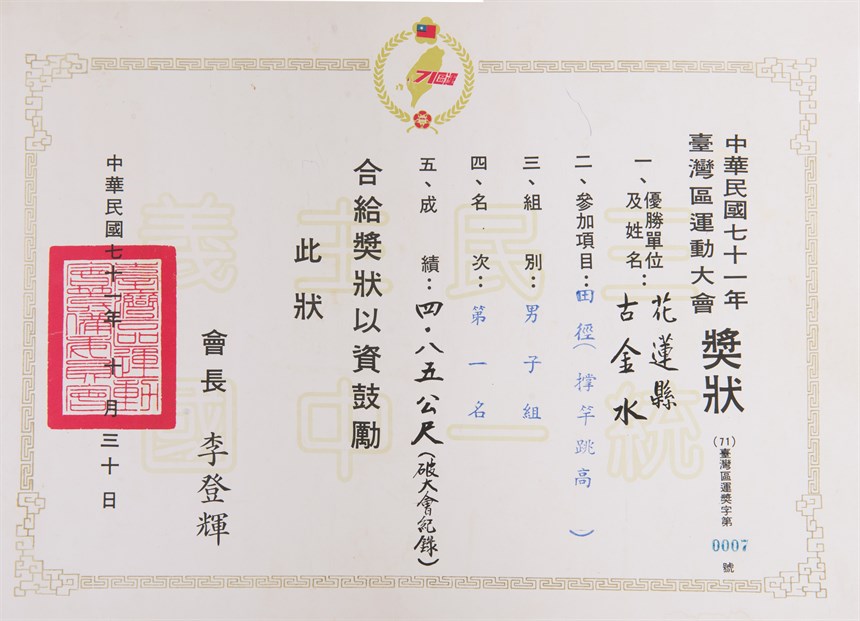 71區運
中華民國七十一年
臺灣區運動大會
獎狀
(71)臺灣區運獎字第0007號
一、優勝單位及姓名：花蓮縣
古金水
二、參加項目：田徑(撐竿跳高)
三、組別：男子組
四、名次：第一名
五、成績：四·八五公尺(破大會紀錄)
合給獎狀以資鼓勵
此狀
會長 李登輝
中華民國七十一年十月三十日
三民主義
統一中國